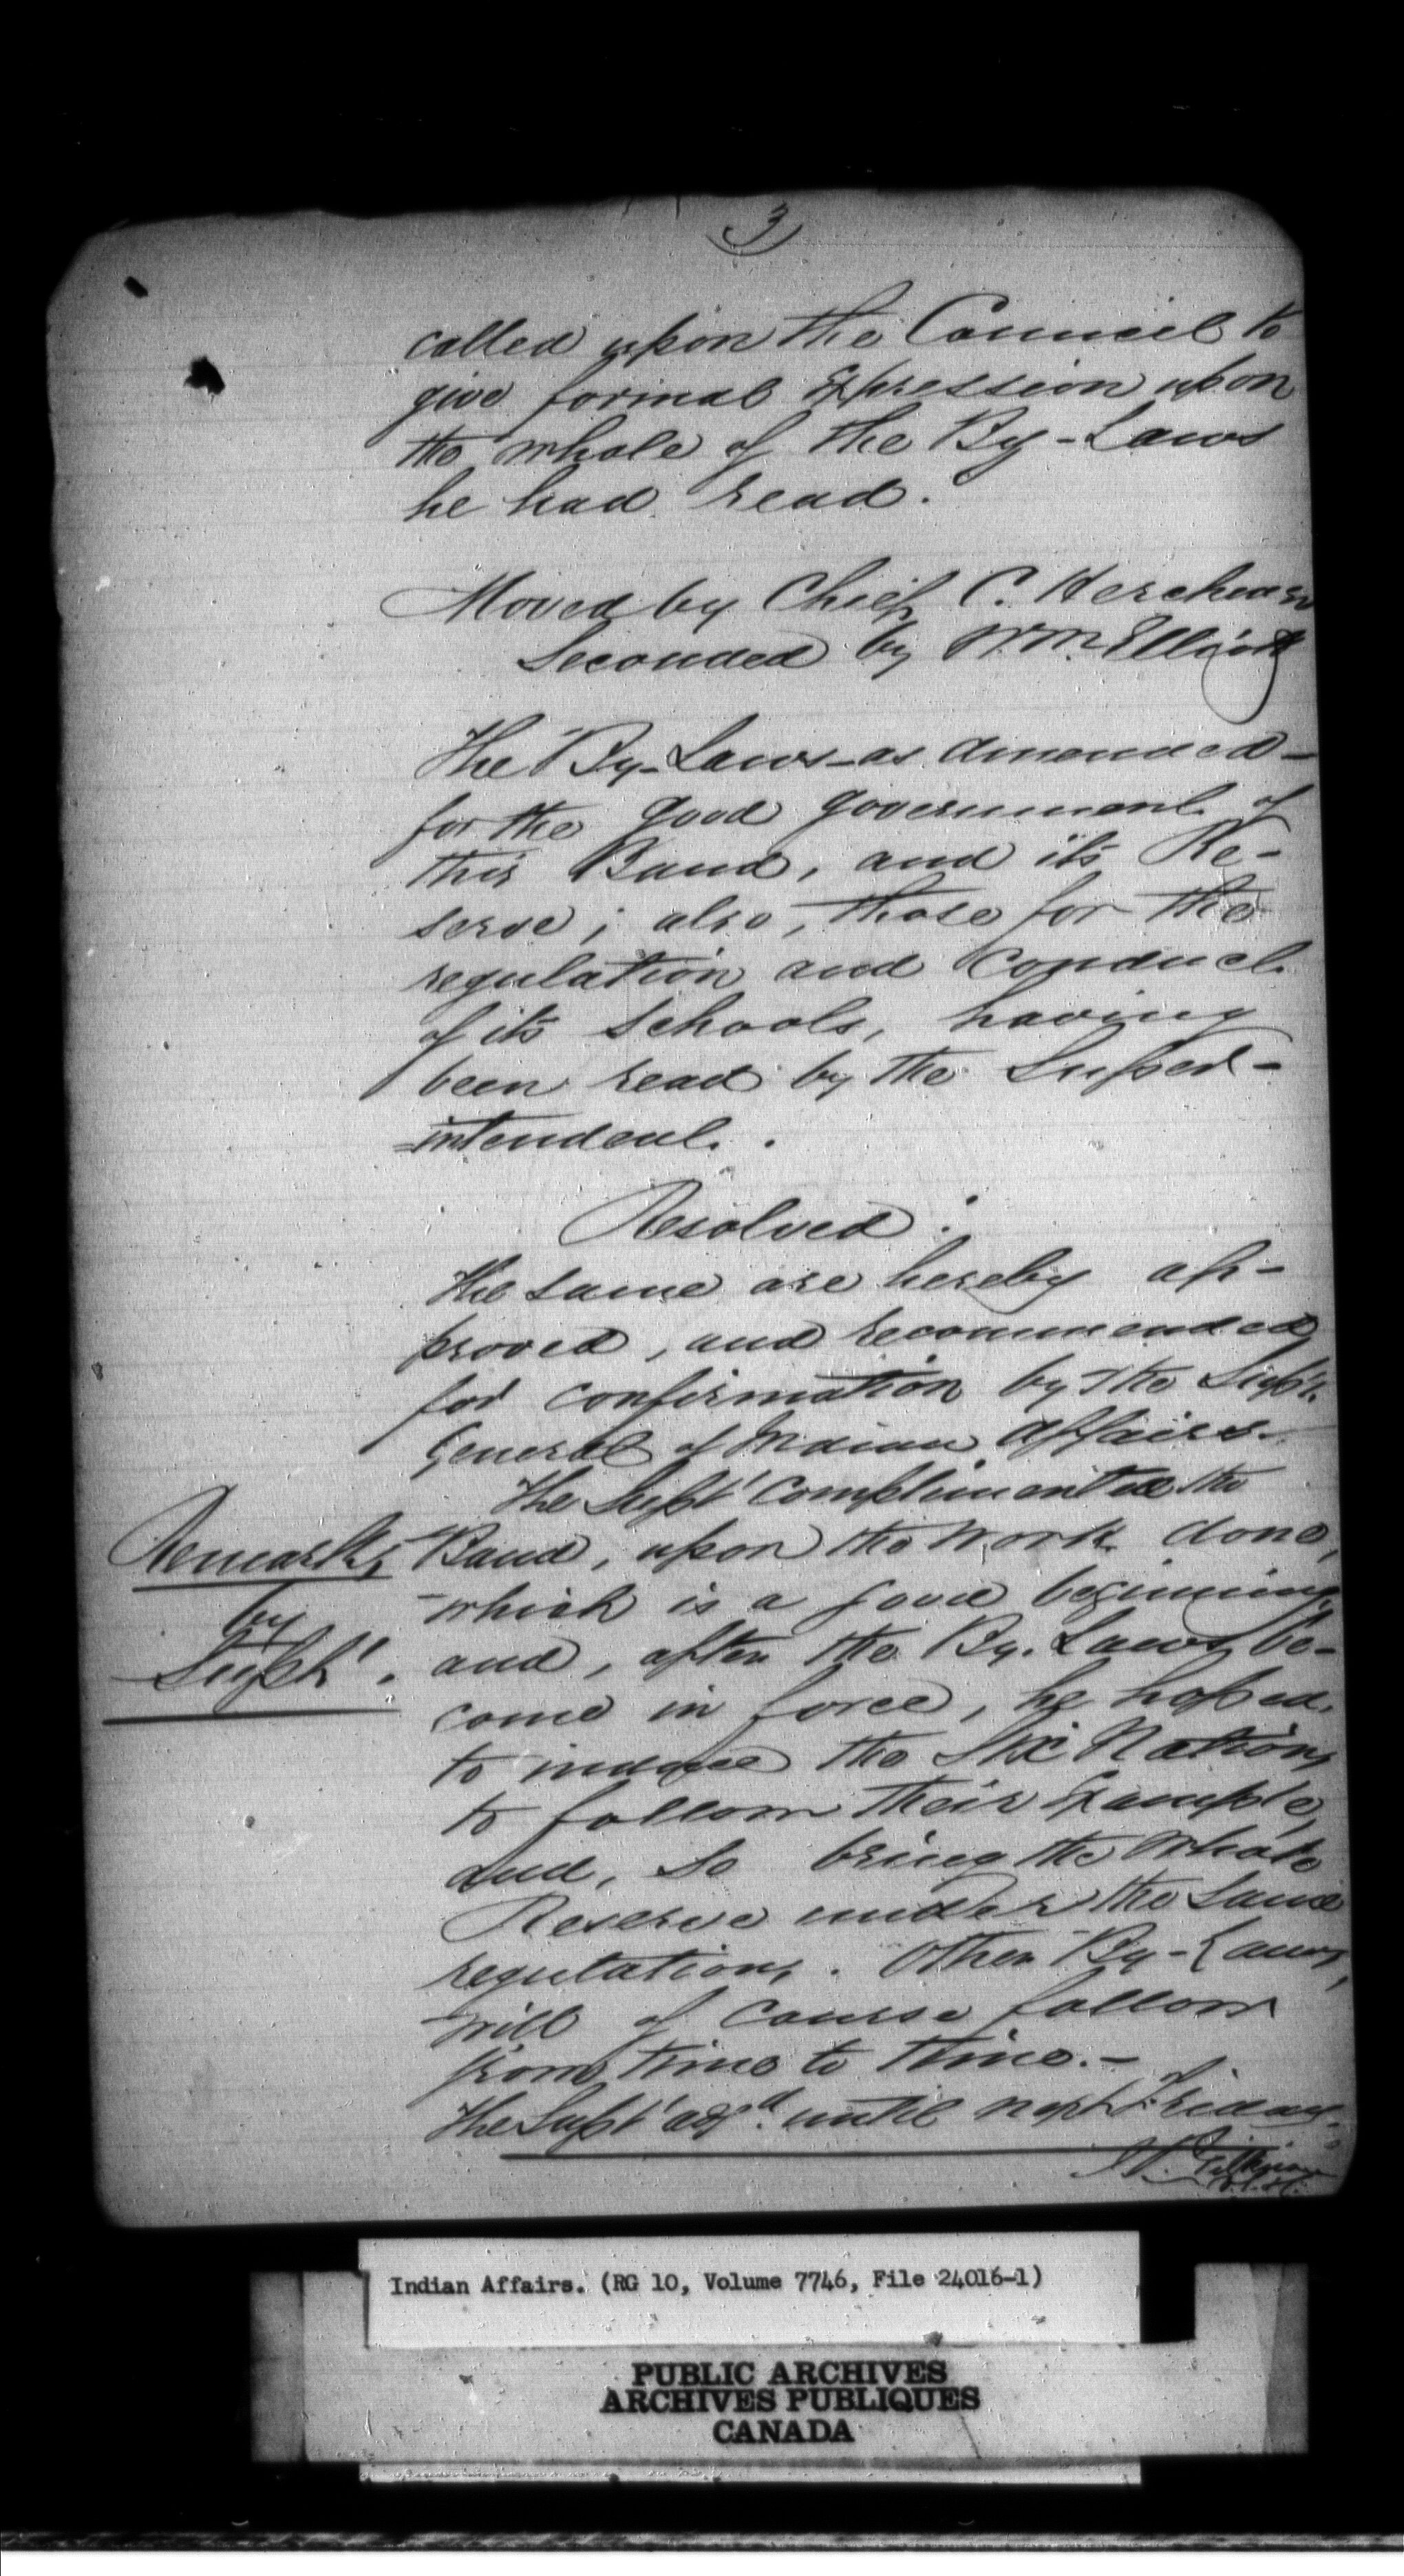 3
called upon the Council to
give formal Expression upon
the whole of the By-Laws
he had read.
Moved by Chief C. Herchmer
Seconded by Wm. Elliott
The By-Laws - as amended -
for the good government of
this Band, and its Re-
serve; also, those for the
regulation and conduct
of its Schools, having
been read by the Super-
=intendent.
Resolved:
The same are hereby ap-
proved, and recommended
for confirmation by the Supt.
General of Indian Affairs.
The Supt' complimented the
Remarks
by
Supt'.
Band, upon the work done,
which is a good beginning,
and, after the By-Laws be-
come in force, he hoped
to induce the Six Nations
to follow their Example,
and, so bring the whole
Reserve under the same
regulations. Other By-Laws,
will of course follow
from time to time.-
The Supt' adjd. until next Friday.
Indian Affairs. (RG 10, Volume 7746, File 24016-1)
PUBLIC ARCHIVES
ARCHIVES PUBLIQUES
CANADA